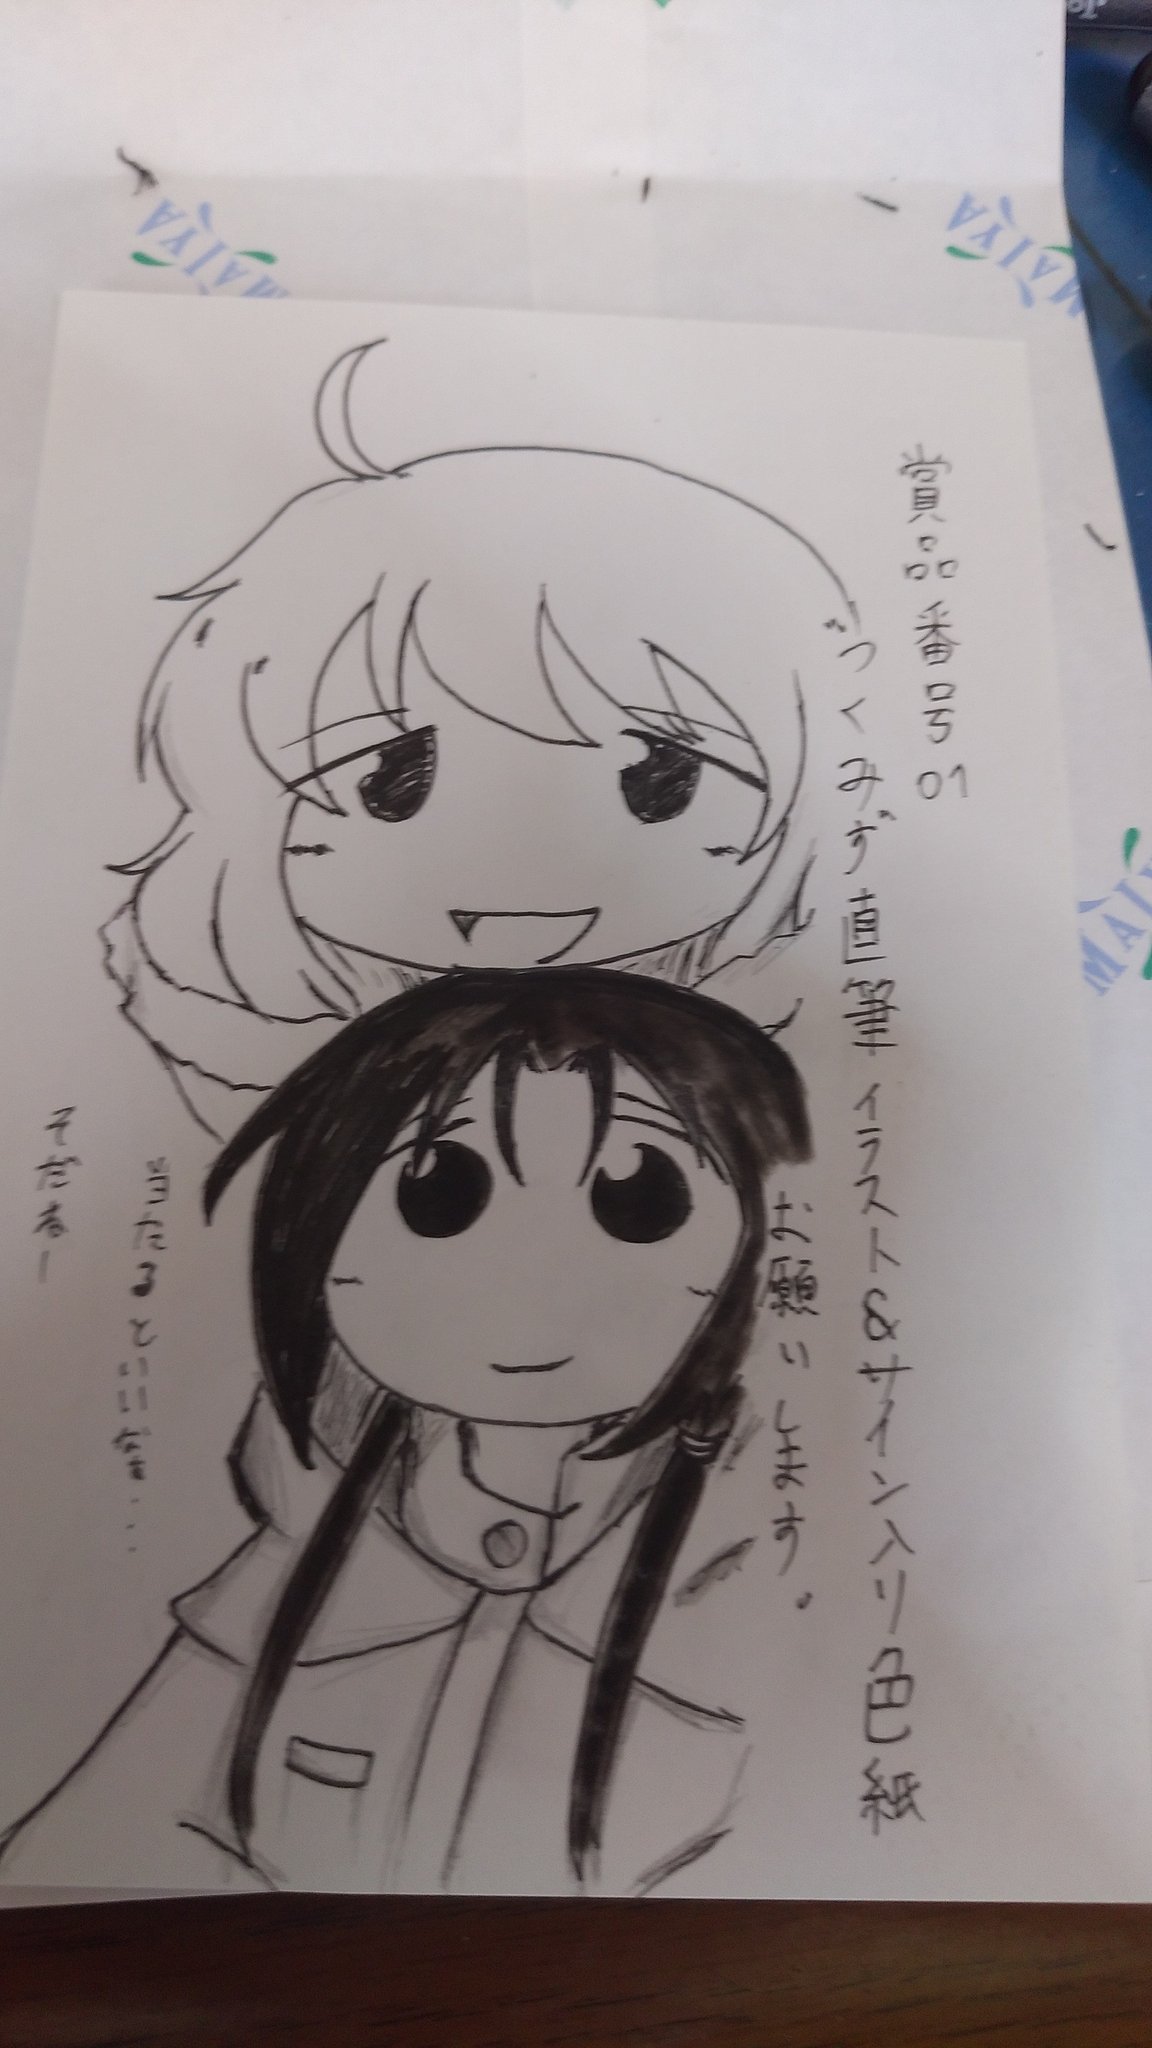 賞品番号01
"つくみず"直筆イラスト&サイン入り色紙
お願いします。
当たるといいなぁ...
そだねー
MAIYA
MAIYA
MAIYA